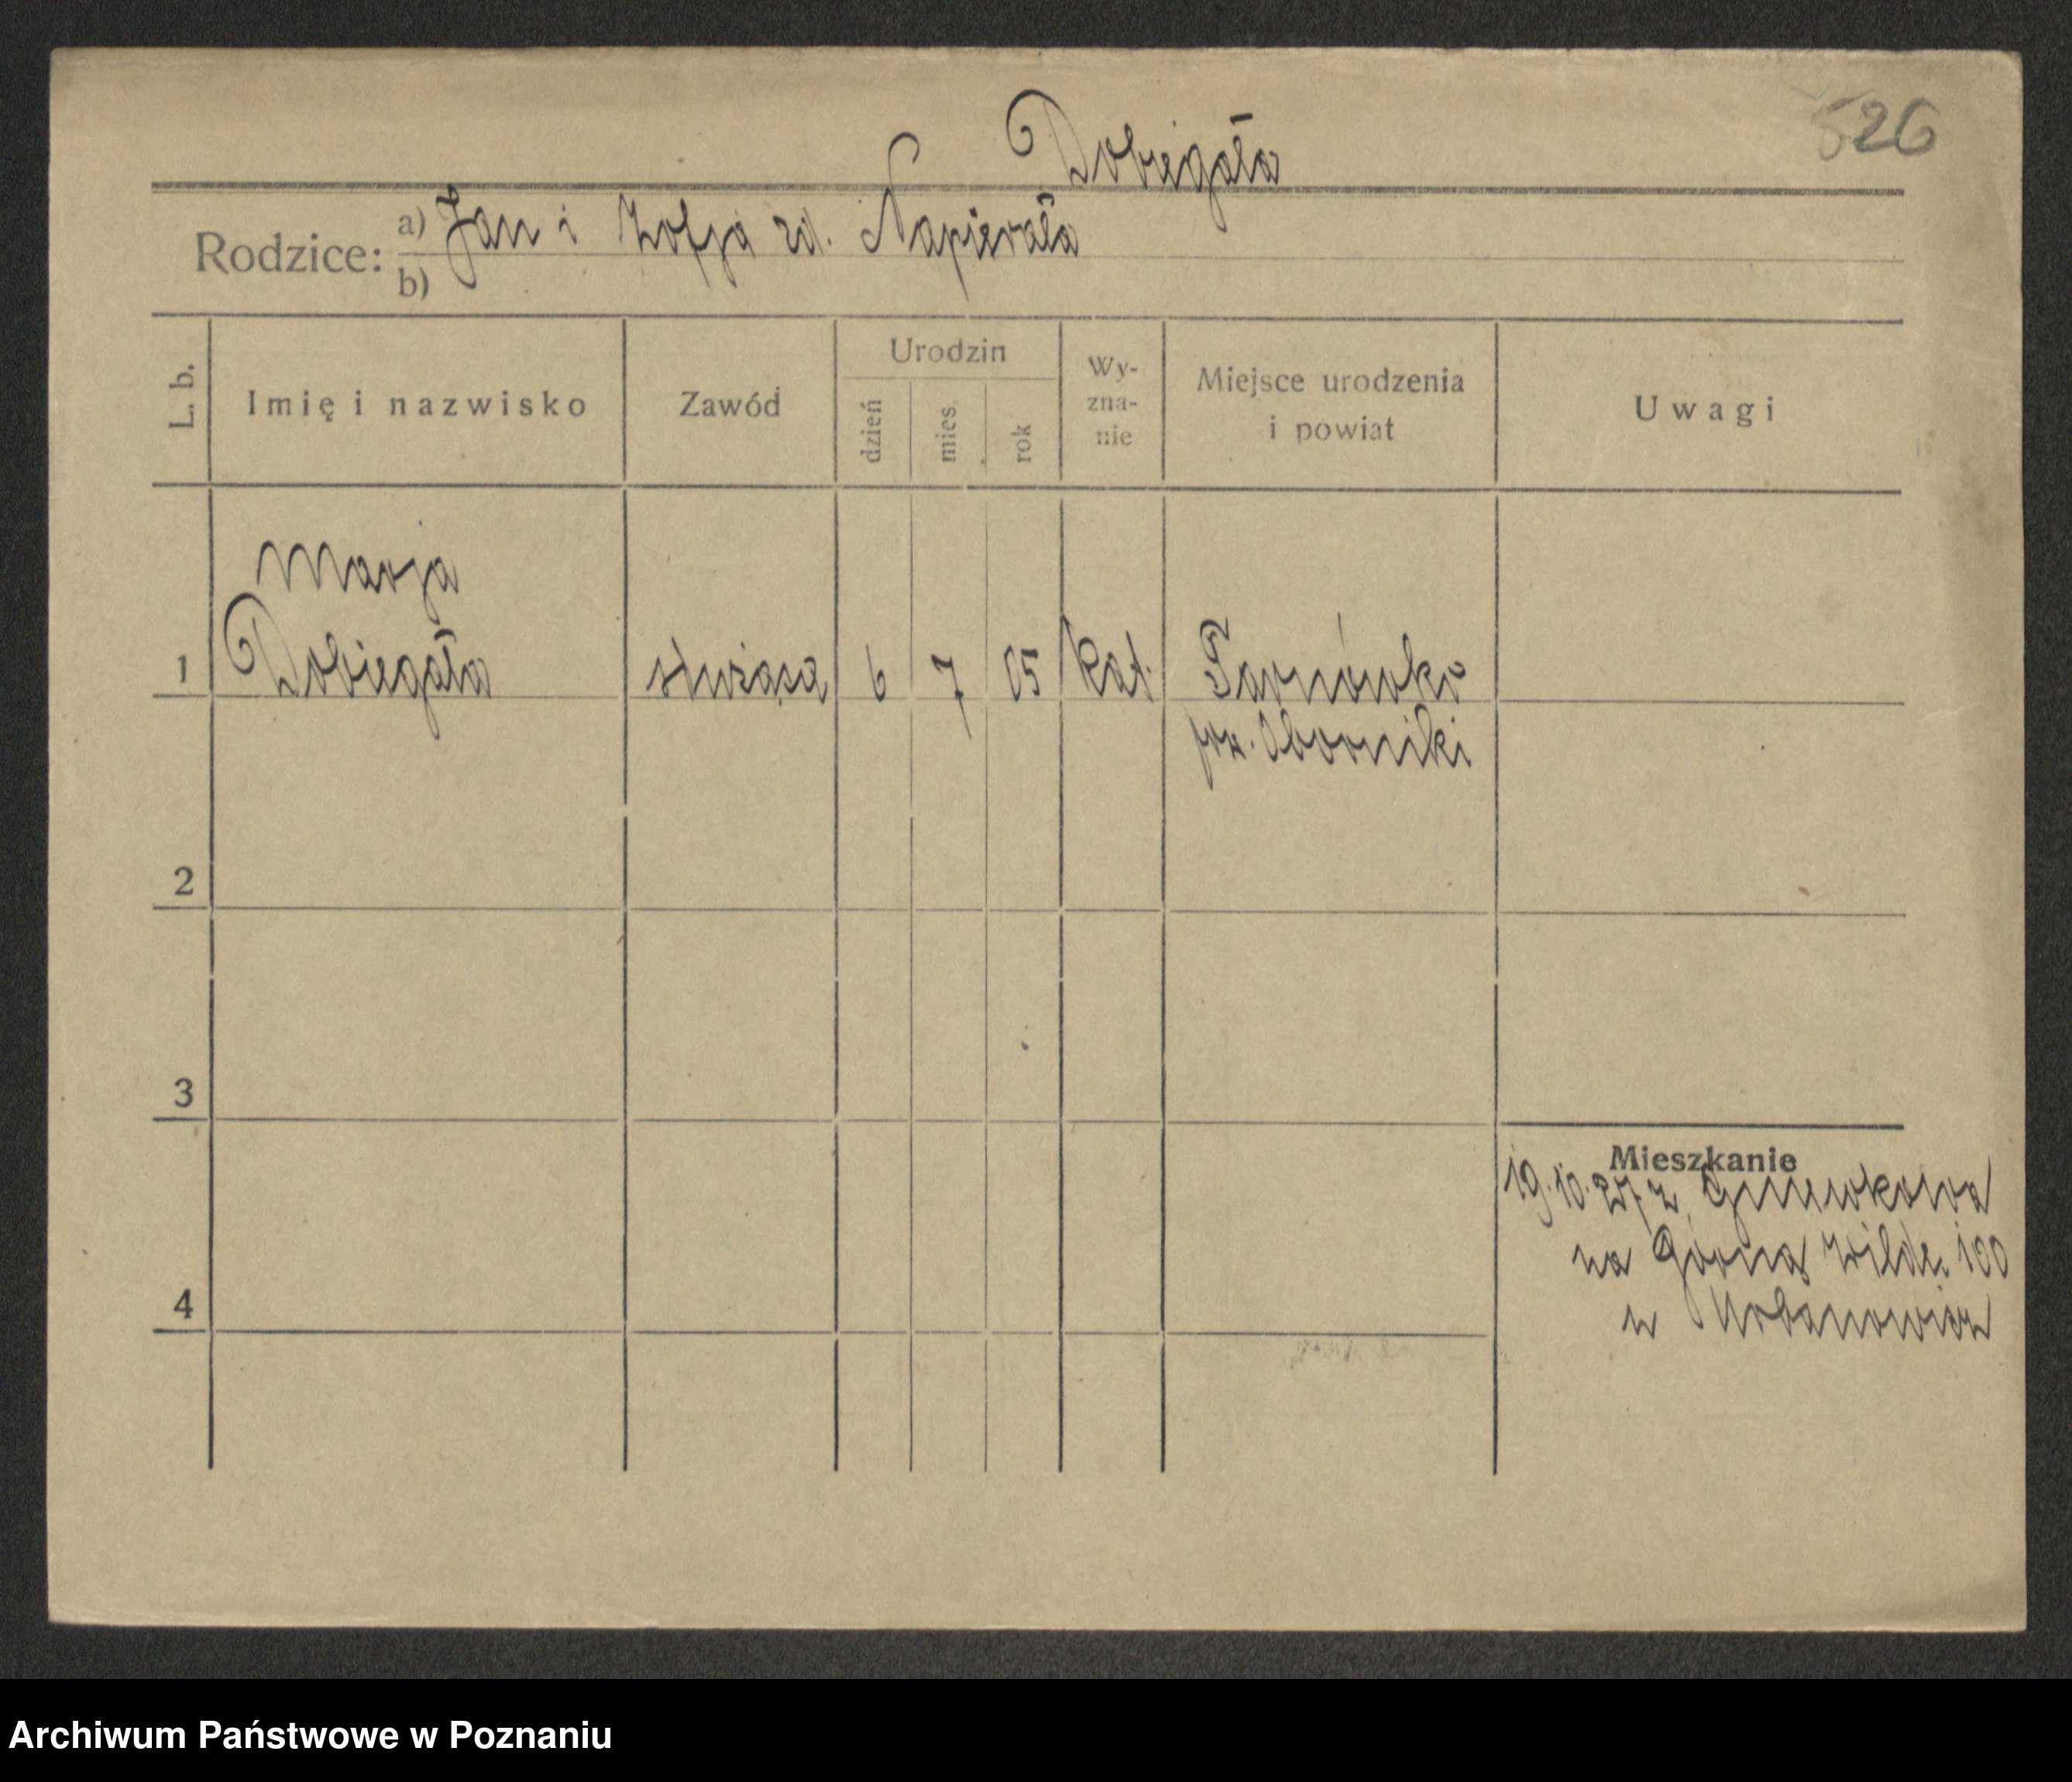 526
Dobiegała
Rodzice: a) Jan i Zofja zd. Napierała
b)
L. b. Imię i nazwisko Zawód Urodzin dzień mies. rok Wy-zna-nie Miejsce urodzenia i powiat Uwagi
Marja
1 Dobiegała służąca 6 7 05 kat. Tarnówko
pw. Oborniki
2
3
Mieszkanie
19.10.27 z Gniewkowa
na Górną Wildę 100
u Urbanowicz
4
Archiwum Państwowe w Poznaniu